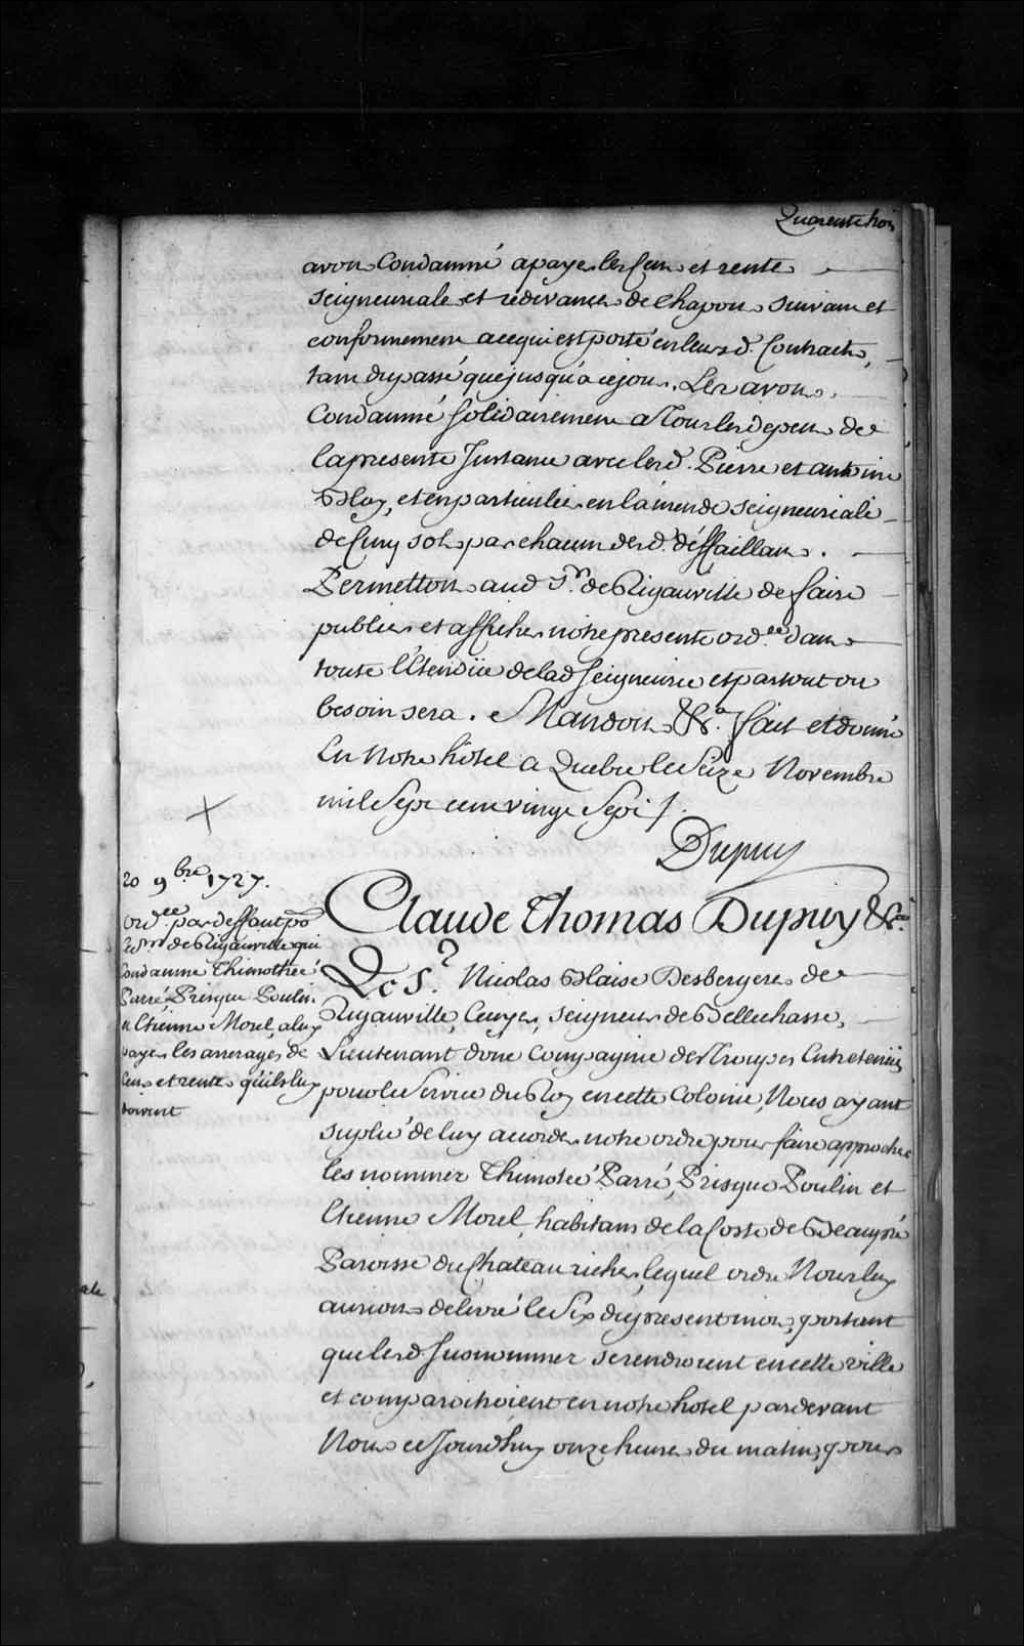 Quarente trois
avons Condamné a payer les Cens et rentes
seigneuriales et redevances de Chapons suivant et
conformement a ce qui est porté en leursd. Contracts,
tant du passé que jusqu'a ce jour. Les avons
Condamné solidairement a Tous les depens de
la presente Instance avec lesd. Pierre et antoine
Blay, et en particulier en l'amende seigneuriale
de Cinq sols par chacun desd. déffaillans.
Permettons aud Sr. de Rigauville de faire
publier et afficher notre presente ord.ce dans
toute l'Etendüe de lad seigneurie et partout ou
besoin sera. Mandons &c.a fait et donné
En Notre hôtel a Quebec le Seize Novembre
mil Sept cent vingt Sept /.
Dupuy
20 9bre 1727.
ord.ce par deffaut po
le Sr de Rigauville qui
Condamne Thimothée
Parré, Prisque Poulin
et Etienne Morel, a luy
payer les arrerages de
Cens et rentes qu'ils luy
doivent
Claude Thomas Dupuy &c.a
Le S.r Nicolas Blaise Desbergeres de
Rigauville, Ecuyer, seigneur de Bellechasse,
Lieutenant d'une Compagnie des Troupes Entretenües
pour le Service du Roy en cette Colonie, Nous ayant
suplié de luy accorder notre ordre pour faire approcher
les nommez Thimotée Parré, Prisque Poulin et
Etienne Morel, habitans de la Coste de Beaupré
Paroisse du Chateau richer, lequel ordre Nous luy
aurions delivré le Six du present mois, portant
que lesd. susnommez se rendroient en cette ville
et comparoitroient en notre hotel pardevant
Nous ce Jourdhuy onze heures du matin, pour